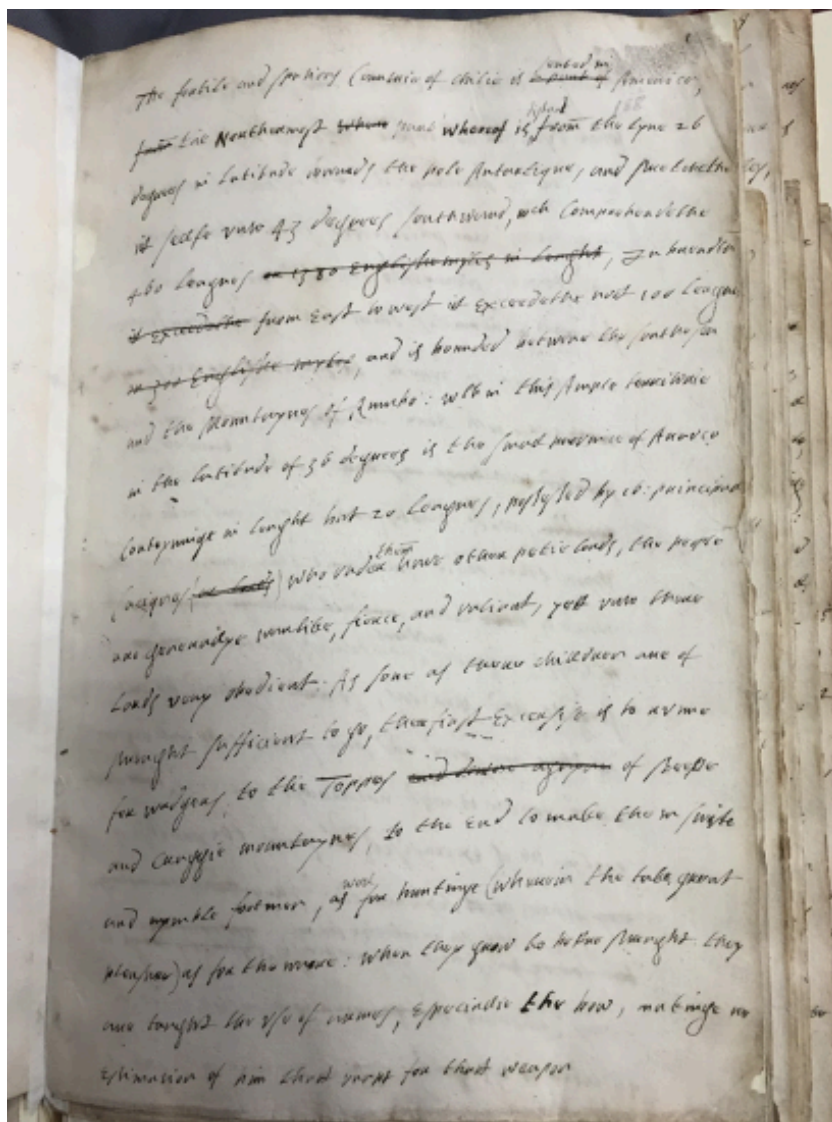 The fertile and spatious Countrie of Chilie is a part of seated in America,
from the Northermost where part whereof is from the lyne 26
degrees in latitude towards the pole Antartique, and
it selfe unto 43 degrees southward, wch Comprehendethe
460 leagues or 1380 Englishe myles in lenght, In
it exceedethe from East to west it exceedethe not 100 league
or 300 Englishe myles, and is bounded betwene the southe sea
and the Mountaynes of : wth in this Ample territorie
in the latitude of 36 degrees is the small province of Arauco
Conteyninge in lenght but 20 leagues, possessed by 16: principall
Caciques (or lords) who under them have other petie lords, the people
are generallye warlike, fierce, and valiant, yett unto those
Lords very obedient. As sone as there children are of
strenght sufficient to go, the first Exercise is to runne
for wadgers to the Toppes of steepe
and Craggie mountaynes, to the End to make them swifte
and nymble footmen, as well for huntinge (wherein the take great
pleasure) as for the warre: when they grow to more strenght they
are taught the use of armes, Especiallie the bow, makinge no
Estimation of him that for that weapon